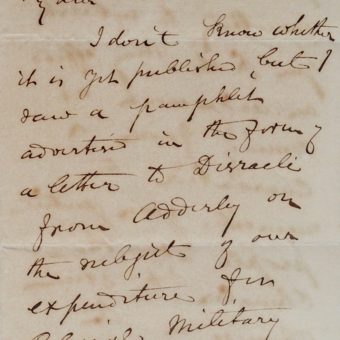 My dear
I don't know whether
it is yet published, but I
saw a pamphlet
advertised in the form of
a letter to Disraeli
from Adderly on
the subject of our
expenditure for
Military